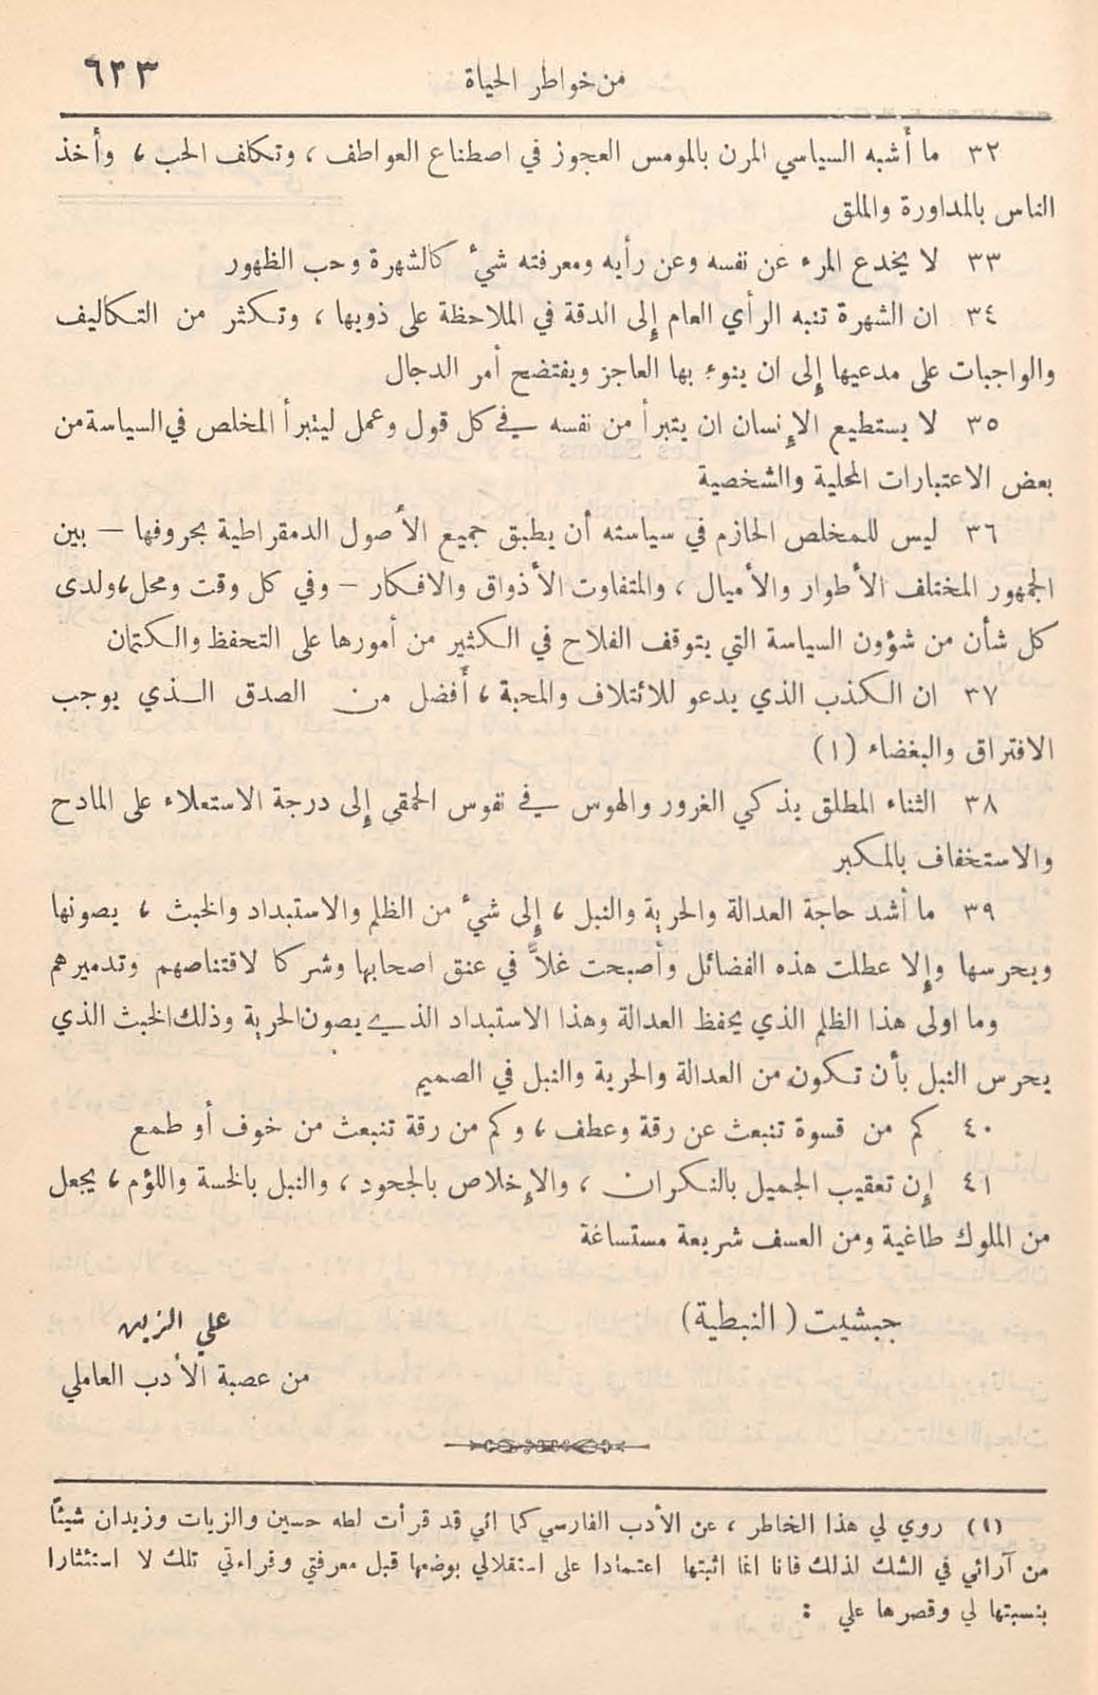 من خواطر الحياة
٦٢٣
٣٢ ما أشبه السياسي المرن بالمومس العجوز في اصطناع العواطف ، وتكلف الحب ، وأخذ
الناس بالمداورة والملق
٣٣ لا يخدع المرء عن نفسه وعن رأيه ومعرفته شيء كالشهرة وحب الظهور
٣٤ ان الشهرة تنبه الرأي العام إلى الدقة في الملاحظة على ذويها ، وتكثر من التكاليف
والواجبات على مدعيها إلى ان ينوء بها العاجز ويفتضح أمر الدجال
٣٥ لا يستطيع الإنسان ان يتبرأ من نفسه في كل قول وعمل ليتبرأ المخلص في السياسة من
بعض الاعتبارات المحلية والشخصية
٣٦ ليس للمخلص الحازم في سياسته أن يطبق جميع الأصول الدمقراطية بحروفها — بين
الجمهور المختلف الأطوار والأميال ، والمتفاوت الأذواق والافكار — وفي كل وقت ومحل ، ولدى
كل شأن من شؤون السياسة التي يتوقف الفلاح في الكثير من أمورها على التحفظ والكتمان
٣٧ ان الكذب الذي يدعو للائتلاف والمحبة ، أفضل من الصدق الذي يوجب
الافتراق والبغضاء (١)
٣٨ الثناء المطلق يذكي الغرور والهوس في نفوس الحمقى إلى درجة الاستعلاء على المادح
والاستخفاف بالمكبر
٣٩ ما أشد حاجة العدالة والحرية والنبل ، إلى شيء من الظلم والاستبداد والخبث ، يصونها
ويحرسها وإلا عطلت هذه الفضائل وأصبحت غلاً في عنق اصحابها وشركا لاقتناصهم وتدميرهم
وما اولى هذا الظلم الذي يحفظ العدالة وهذا الاستبداد الذي يصون الحرية وذلك الخبث الذي
يحرس النبل بأن تكون من العدالة والحرية والنبل في الصميم
٤٠ كم من قسوة تنبعث عن رقة وعطف ، وكم من رقة تنبعث من خوف أو طمع
٤١ إن تعقيب الجميل بالنكران ، والإخلاص بالجحود ، والنبل بالخسة واللؤم ، يجعل
من الملوك طاغية ومن العسف شريعة مستساغة
جبشيت (النبطية)
علي الزين
من عصبة الأدب العاملي
(١) روي لي هذا الخاطر ، عن الأدب الفارسي كما اني قد قرأت لطه حسين والزيات وزيدان شيئاً
من آرائي في الشك لذلك فانا انما اثبتها اعتمادا على استقلالي بوضعها قبل معرفتي وقراءتي تلك لا استئثارا
بنسبتها لي وقصرها علي :